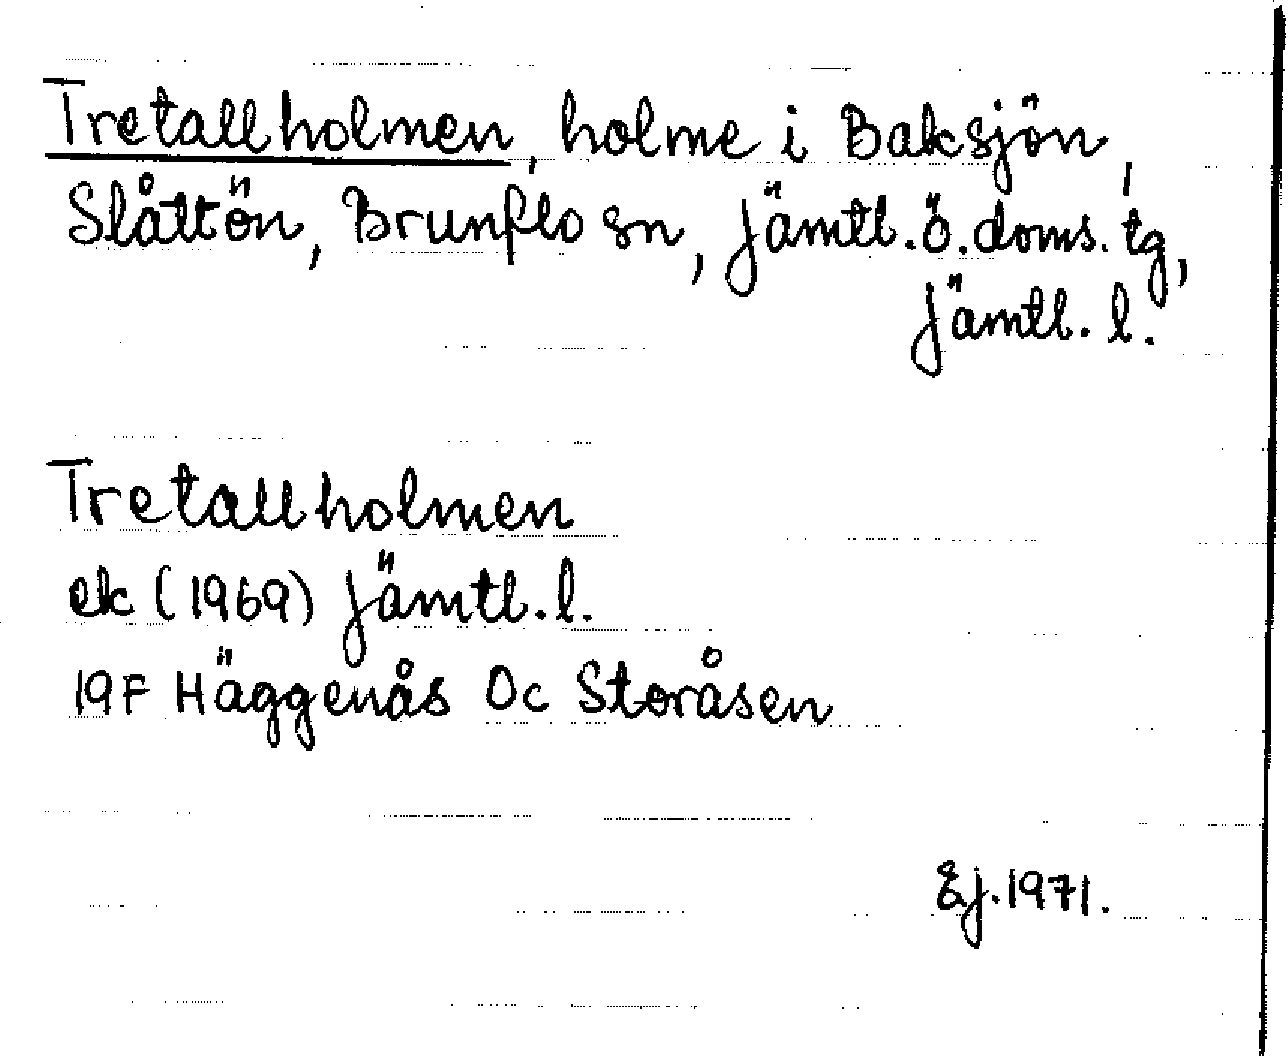 Tretallholmen, holme i Baksjön,
Slåttön, Brunflo sn, Jämtl. ö. doms. tg,
Jämtl. l.
Tretallholmen
ek (1969) Jämtl. l.
19F Häggenås 0c Storåsen
Ej. 1971.